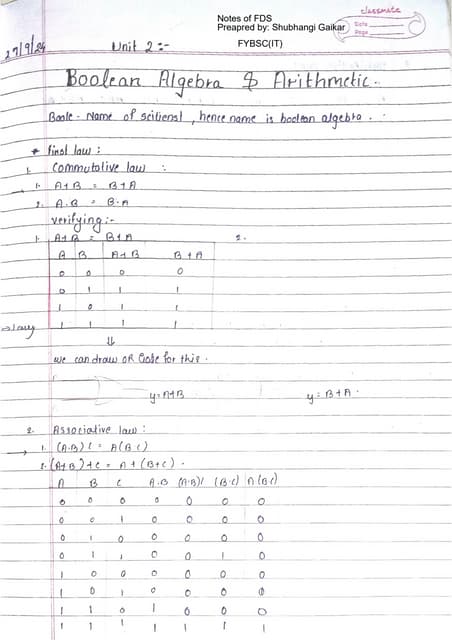 classmate
Date
Page
Notes of FDS
Preapred by: Shubhangi Gaikar
FYBSC(IT)
27/9/24
Unit 2 :-
Boolean Algebra & Arithmetic.
Boole - Name of scitienst, hence name is boolean algebra.
* first law :
1. Commutative law :
→ 1. A+B = B+A
2. A.B = B.A
verifying :-
1. A+B = B+A 2.
A B A+B B+A
0 0 0 0
0 1 1 1
1 0 1 1
1 1 1 1
⇓
we can draw OR Gate for this.
y=A+B y=B+A.
2. Associative law :
→ 1. (A.B) C = A(B C)
2. (A+B)+C = A+(B+C).
A B C A.B (A.B)C (B.C) A(BC)
0 0 0 0 0 0 0
0 0 1 0 0 0 0
0 1 0 0 0 0 0
0 1 1 0 0 1 0
1 0 0 0 0 0 0
1 0 1 0 0 0 0
1 1 0 1 0 0 0
1 1 1 1 1 1 1